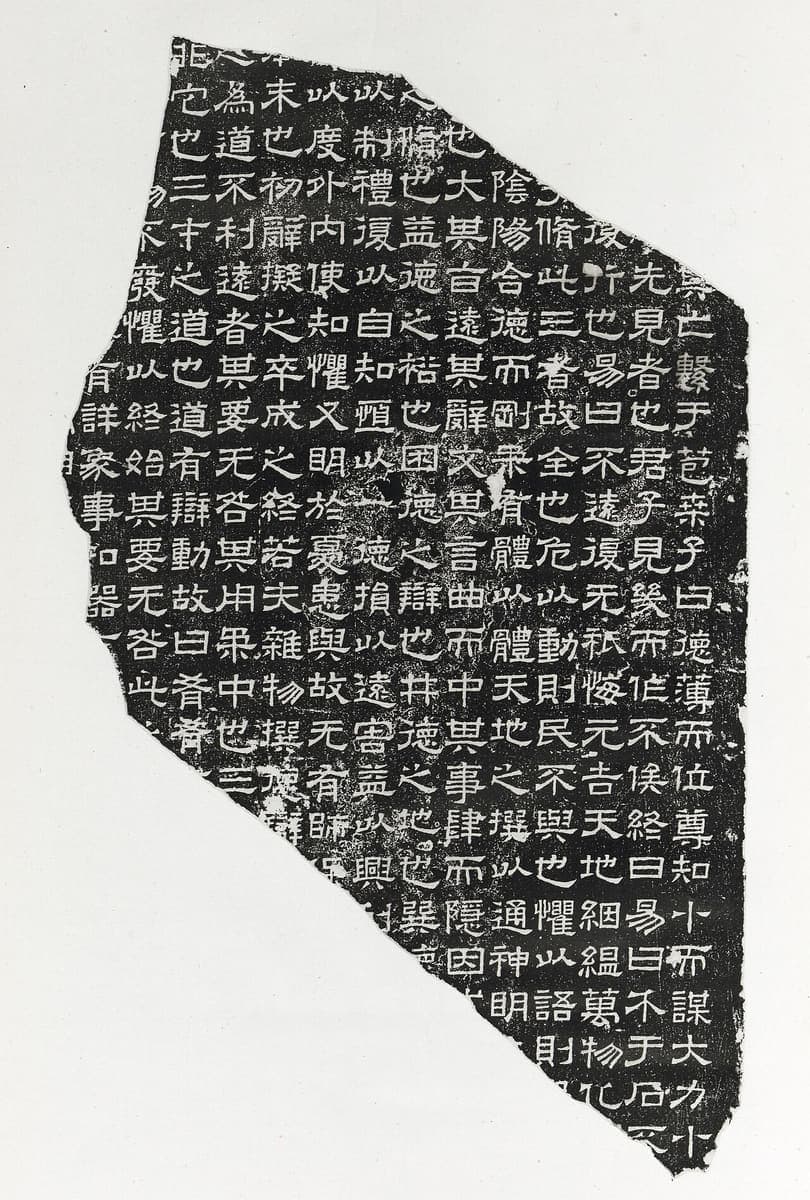 其亡繫于苞桒子曰德薄而位尊知小而謀大力小
先見者也君子見幾而作不俟終日易曰介于石
復行也易曰不遠復无祇悔元吉天地絪縕萬物化
脩此三者故全也危以動則民不與也懼以語則
陰陽合德而剛柔有體以體天地之撰以通神明
也大其旨遠其辭文其言曲而中其事肆而隱因
之脩也益德之裕也困德之辯也井德之地也巽德
以制禮復以自知恒以一德損以遠害益以興利
以度外內使知懼又明於憂患與故无有師保
本末也初辭擬之卒成之終若夫雜物撰德辯
之為道不利遠者其要无咎其用柔中也三
非它也三才之道也道有辯動故曰肴肴
物不廢懼以終始其要无咎此
有詳象事知器